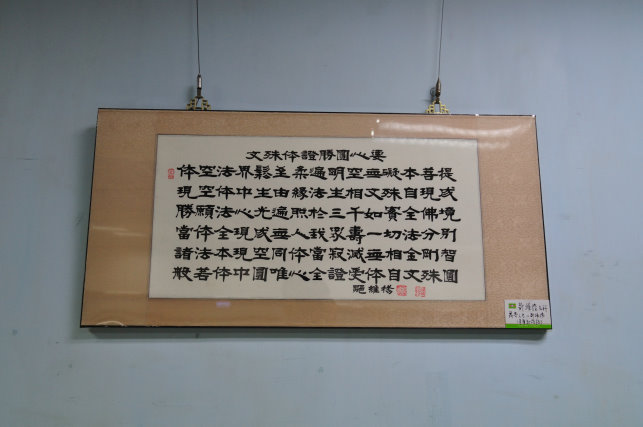 文殊体證勝圓心要
体空法界鬆至柔遍明空無礙本菩提
現空体中主由緣法生相文殊自現成
勝願法心光遍照於三千如實全佛境
當体全現成無人我眾壽一切法分別
諸法本現空同体當寂滅無相金剛智
般若体中圓唯心全證受体自文殊圓